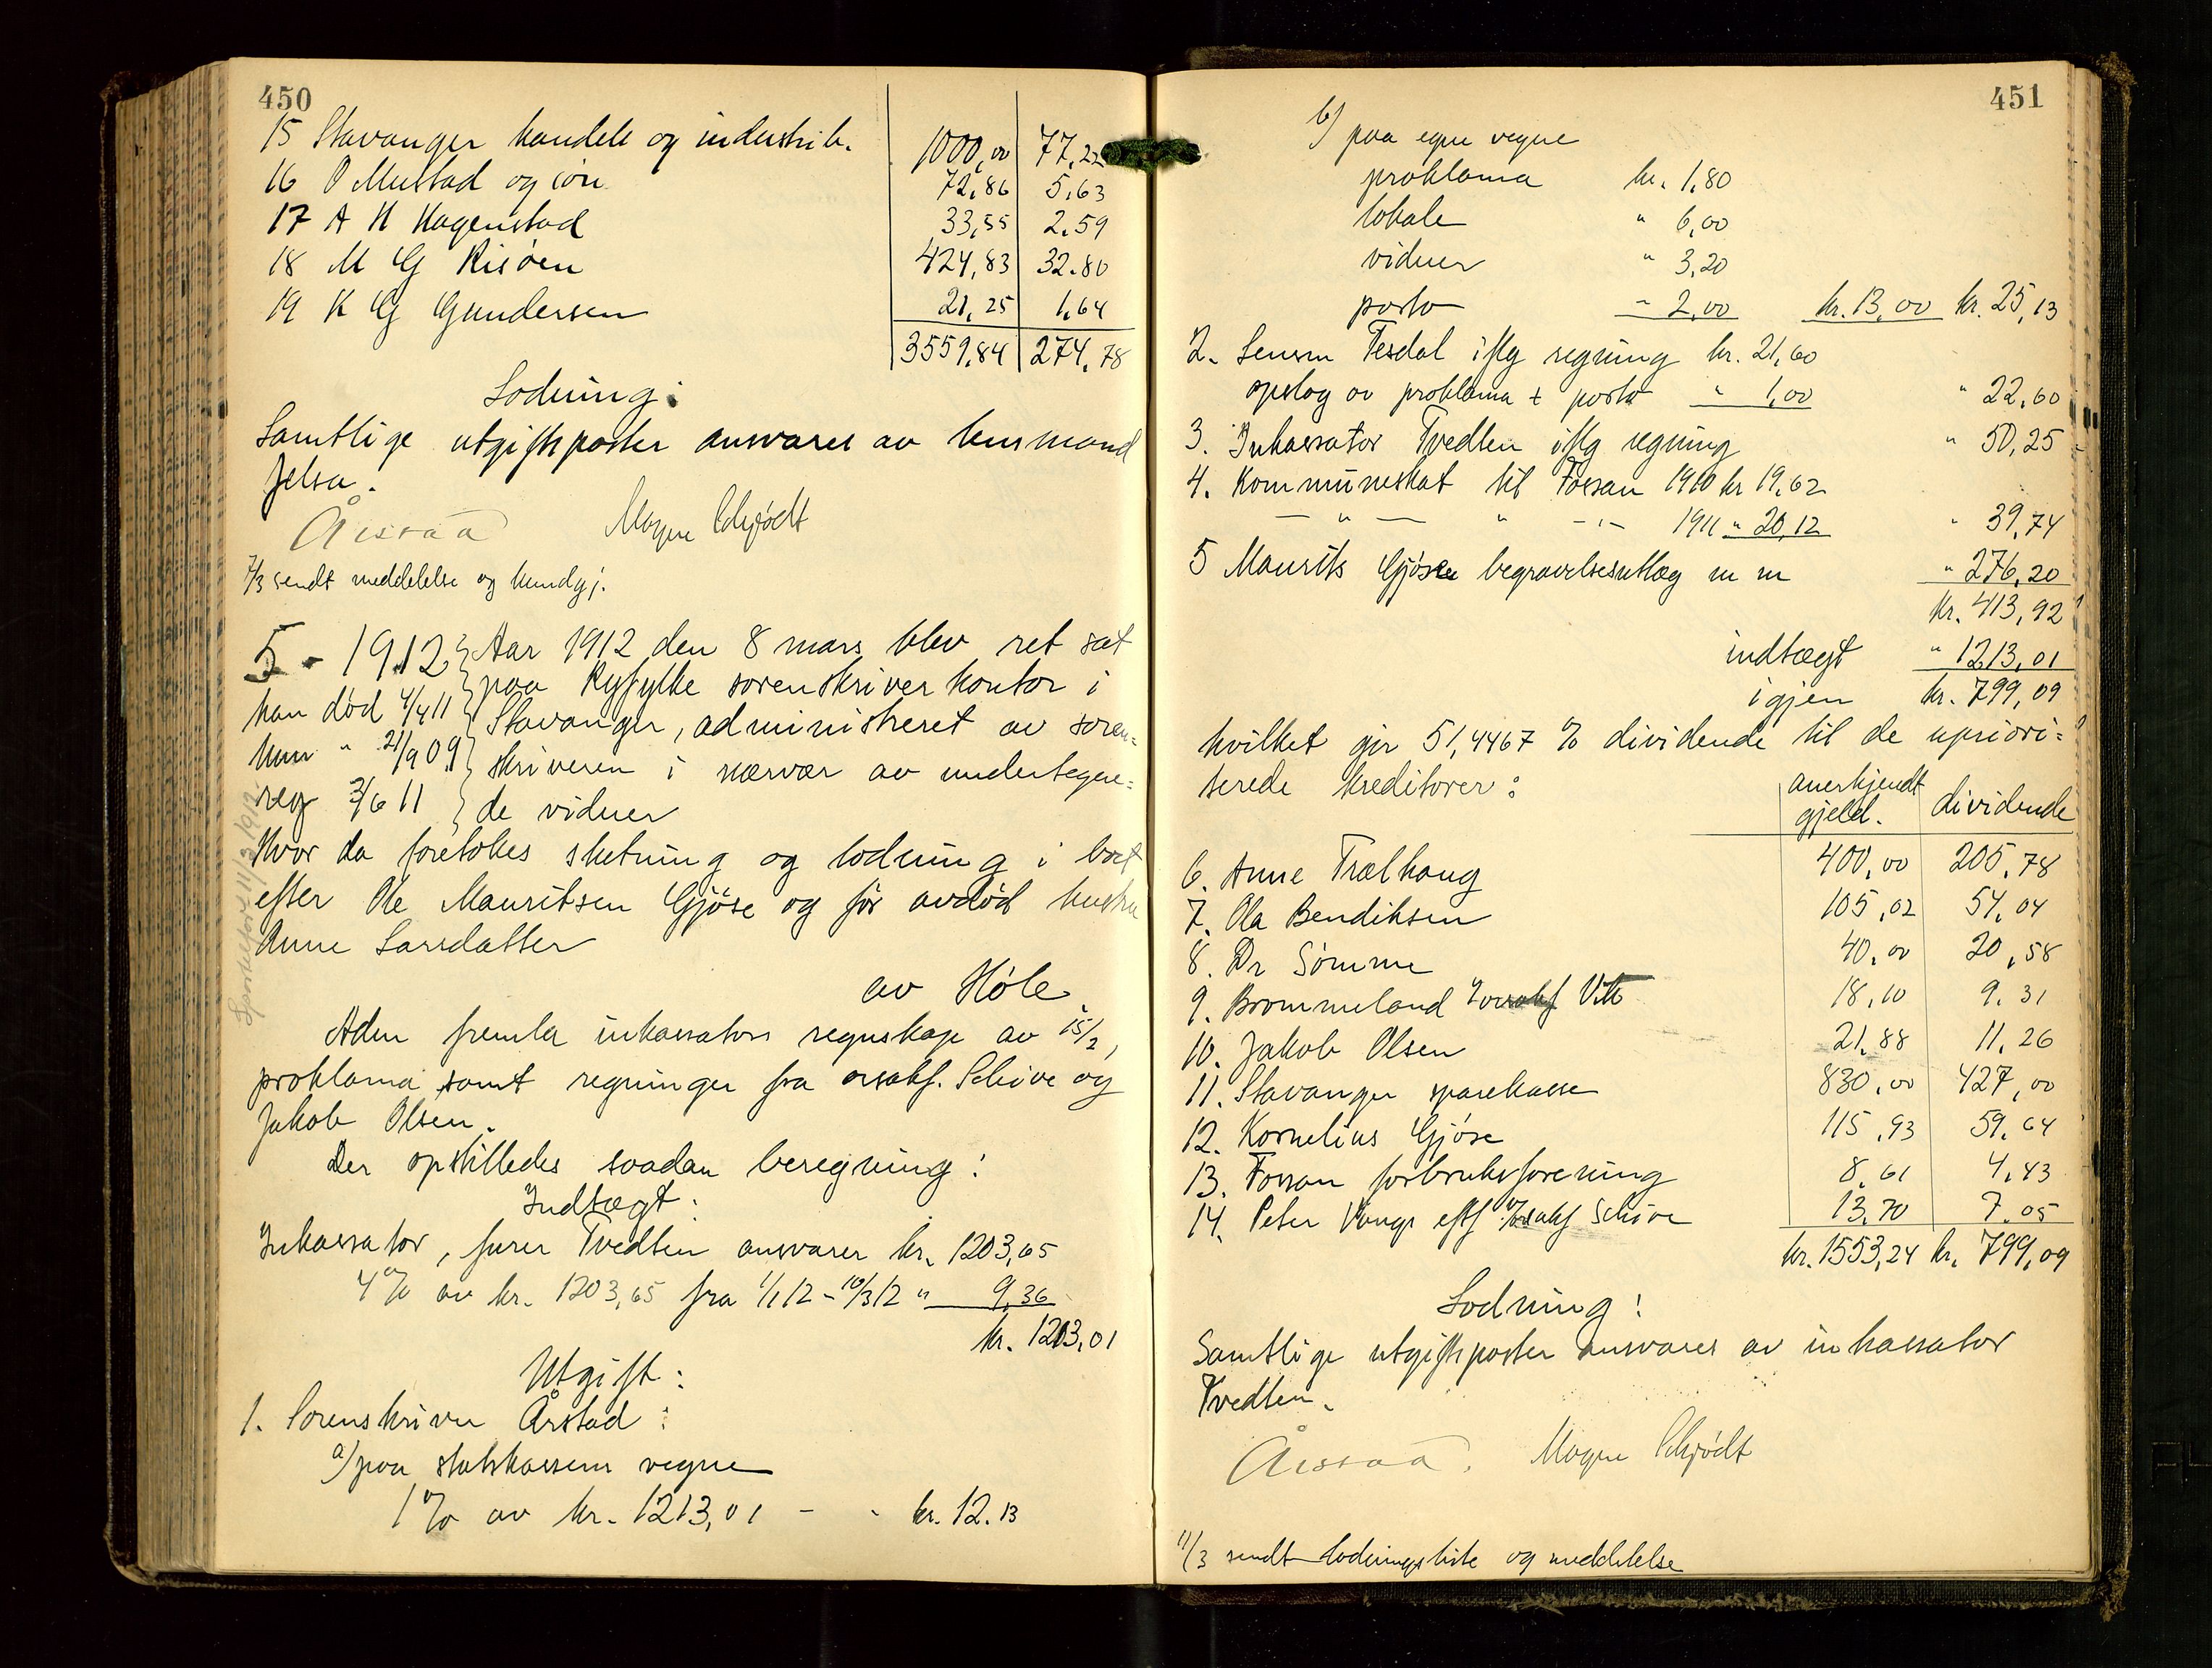 450
15 Stavanger handels og industrib. 1000,00 77,22
16 O Mustad og søn 72,86 5,63
17 A H Hagenstad 33,55 2,59
18 M G Risøen 424,83 32.80
19 K G Gundersen 21,25 1,64
3559,84 274,78
Lodning:
Samtlige utgiftsposter ansvares av lensmand
Jelsa.
Årstad Mogne Schjødt
7/3 sendt meddelelse og kundgj.
5 - 1912 Aar 1912 den 8 mars blev ret sat
han død 4/4 11 paa Ryfylke sorenskriverkontor i
hun " 21/9 09 Stavanger, administreret av soren=
reg 3/6 11 skriveren i nærvær av undertegne=
de vidner
Hvor da foretokes slutning og lodning i boet
efter Ole Mauritsen Gjöse og før avdød hustru
Anne Larsdatter
av Høle.
Aden fremla inkassators regnskap av 15/2,
proklama samt regninger fra orsakf. Schive og
Jakob Olsen.
Der opstilledes saadan beregning:
Indtægt:
Inkassator, furer Tvedten ansvarer kr. 1203,65
4 % av kr. 1203,65 fra 1/1 12 - 10/3 12 " 9,36
kr. 1213,01
Utgift:
1. Sorenskriver Årstad:
a/ paa statskassens vegne
1 % av kr. 1213,01 - - kr. 12.13
11/3 1912
451
b/ paa egne vegne
proklama kr. 1,80
lokale " 6,00
vidner " 3,20
porto " 2,00 kr. 13,00 kr. 25,13
2. Lensm Tesdal iflg regning kr. 21,60
opslag av proklama + porto " 1,00 " 22,60
3. Inkassator Tvedten iflg regning " 50,25
4. Kommuneskat til Fossan 1910 kr 19,62
— " — " - " - 1911 " 20,12 " 39,74
5 Maurits Gjöse begravelsesutlæg m m " 276,20
kr. 413,92
indtægt " 1213,01
igjen kr. 799,09
hvilket gir 51,4467 % dividende til de upriori=
terede kreditorer:
anerkjendt gjeld. dividende
6. Anne Trælhaug 400,00 205,78
7. Ola Bendiksen 105,02 54,04
8. Dr Sömme 40,00 20,58
9. Brommeland 18,10 9,31
10. Jakob Olsen 21,88 11,26
11. Stavanger sparekasse 830,00 427,00
12. Kornelius Gjöse 115,93 59,64
13. Fossan forbruksforening 8,61 4,43
14. Peter Vaugs eftf v/orsakf Schive 13,70 7.05
kr. 1553,24 kr. 799,09
Lodning:
Samtlige utgiftsposter ansvares av inkassator
Tvedten.
Årstad. Mogne Schjødt
11/3 sendt lodningsliste og meddelelse